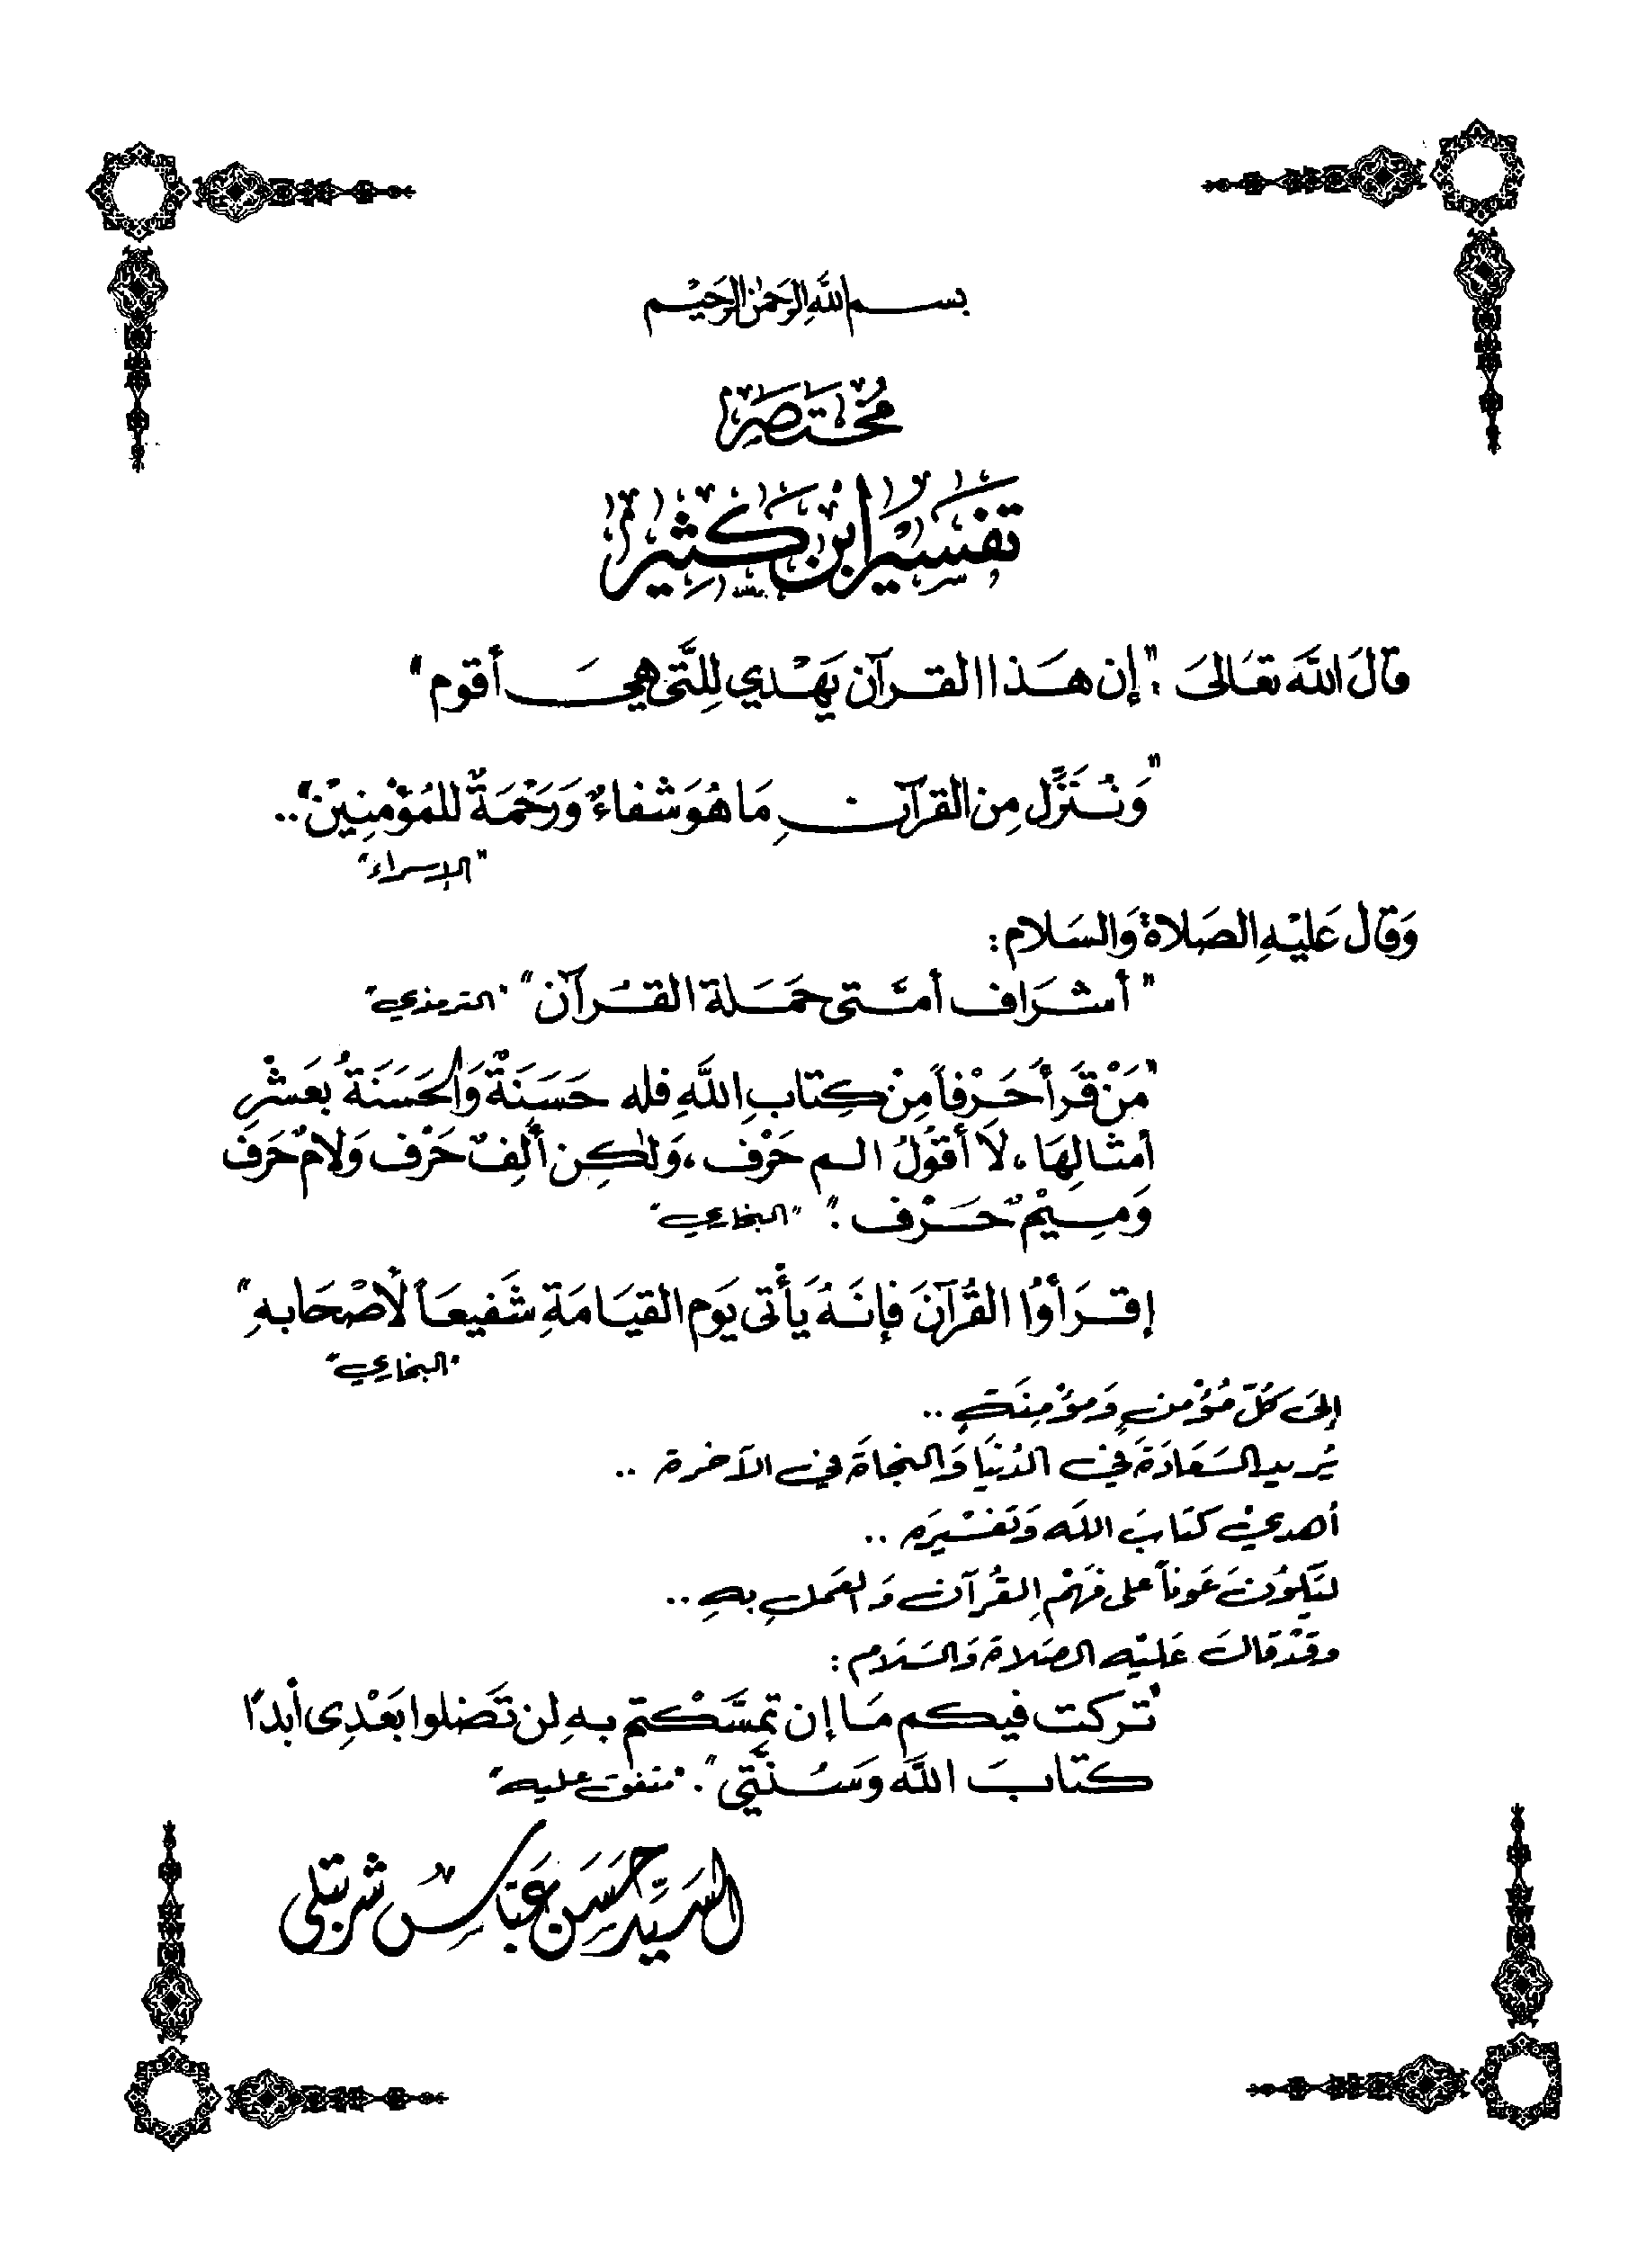 بسم الله الرحمن الرحيم
مُختَصَر
تَفسِير ابن كَثِير
قالَ اللهَ تعَالىَ : "إن هَذا القرآن يَهْدي للِتَّى هيَ أقوم"
"وَنُنَزِّل مِن القرآنِ مَا هُوَ شفاءٌ وَرَحْمَةٌ للمُؤْمِنِيْن"..
"الإسراء"
وَقال عَليْهِ الصَلاة وَالسَلام :
"أشرَاف أمَّتى حَمَلة القُرآن" "الترمذي"
"مَنْ قَرأ حَرْفاً مِنْ كِتابِ اللَّهِ فله حَسَنَةٌ وَالحَسَنَةُ بعَشْرِ
أمثالِهَا ، لاَ أقوُلُ الم حَرْف ، وَلٰكِن ألِفٌ حَرْف وَلامٌ حَرف
وَمِيْمٌ حَرْف ." "البخاري"
إقرَأوُا القُرآنَ فإنَهُ يَأتى يَوم القيَامَةِ شَفيعَاً لأصْحَابهِ"
"البخاري"
إلىَ كلّ مُؤْمنٍ وَمؤْمِنَةٍ ..
يُريد السَعَادَةَ في الدُنيَا وَالنجاةَ في الآخرة ..
أهدي كتابَ اللهَ وَتفسْيَره ..
لتَكوُنَ عَوناً على فهْمِ القُرآن وَالعَملِ بهِ ..
وقدْ قالَ عَليْه الصَلاة وَالسَلام :
"تركت فيكم مَا إن تمسَّكتم بهِ لن تَضلوا بَعْدِى أبدًا
كتابَ اللَّه وَسُنَّتي". "متفق عليه"
السَيِّد حَسَن عَبّاس شربتلى